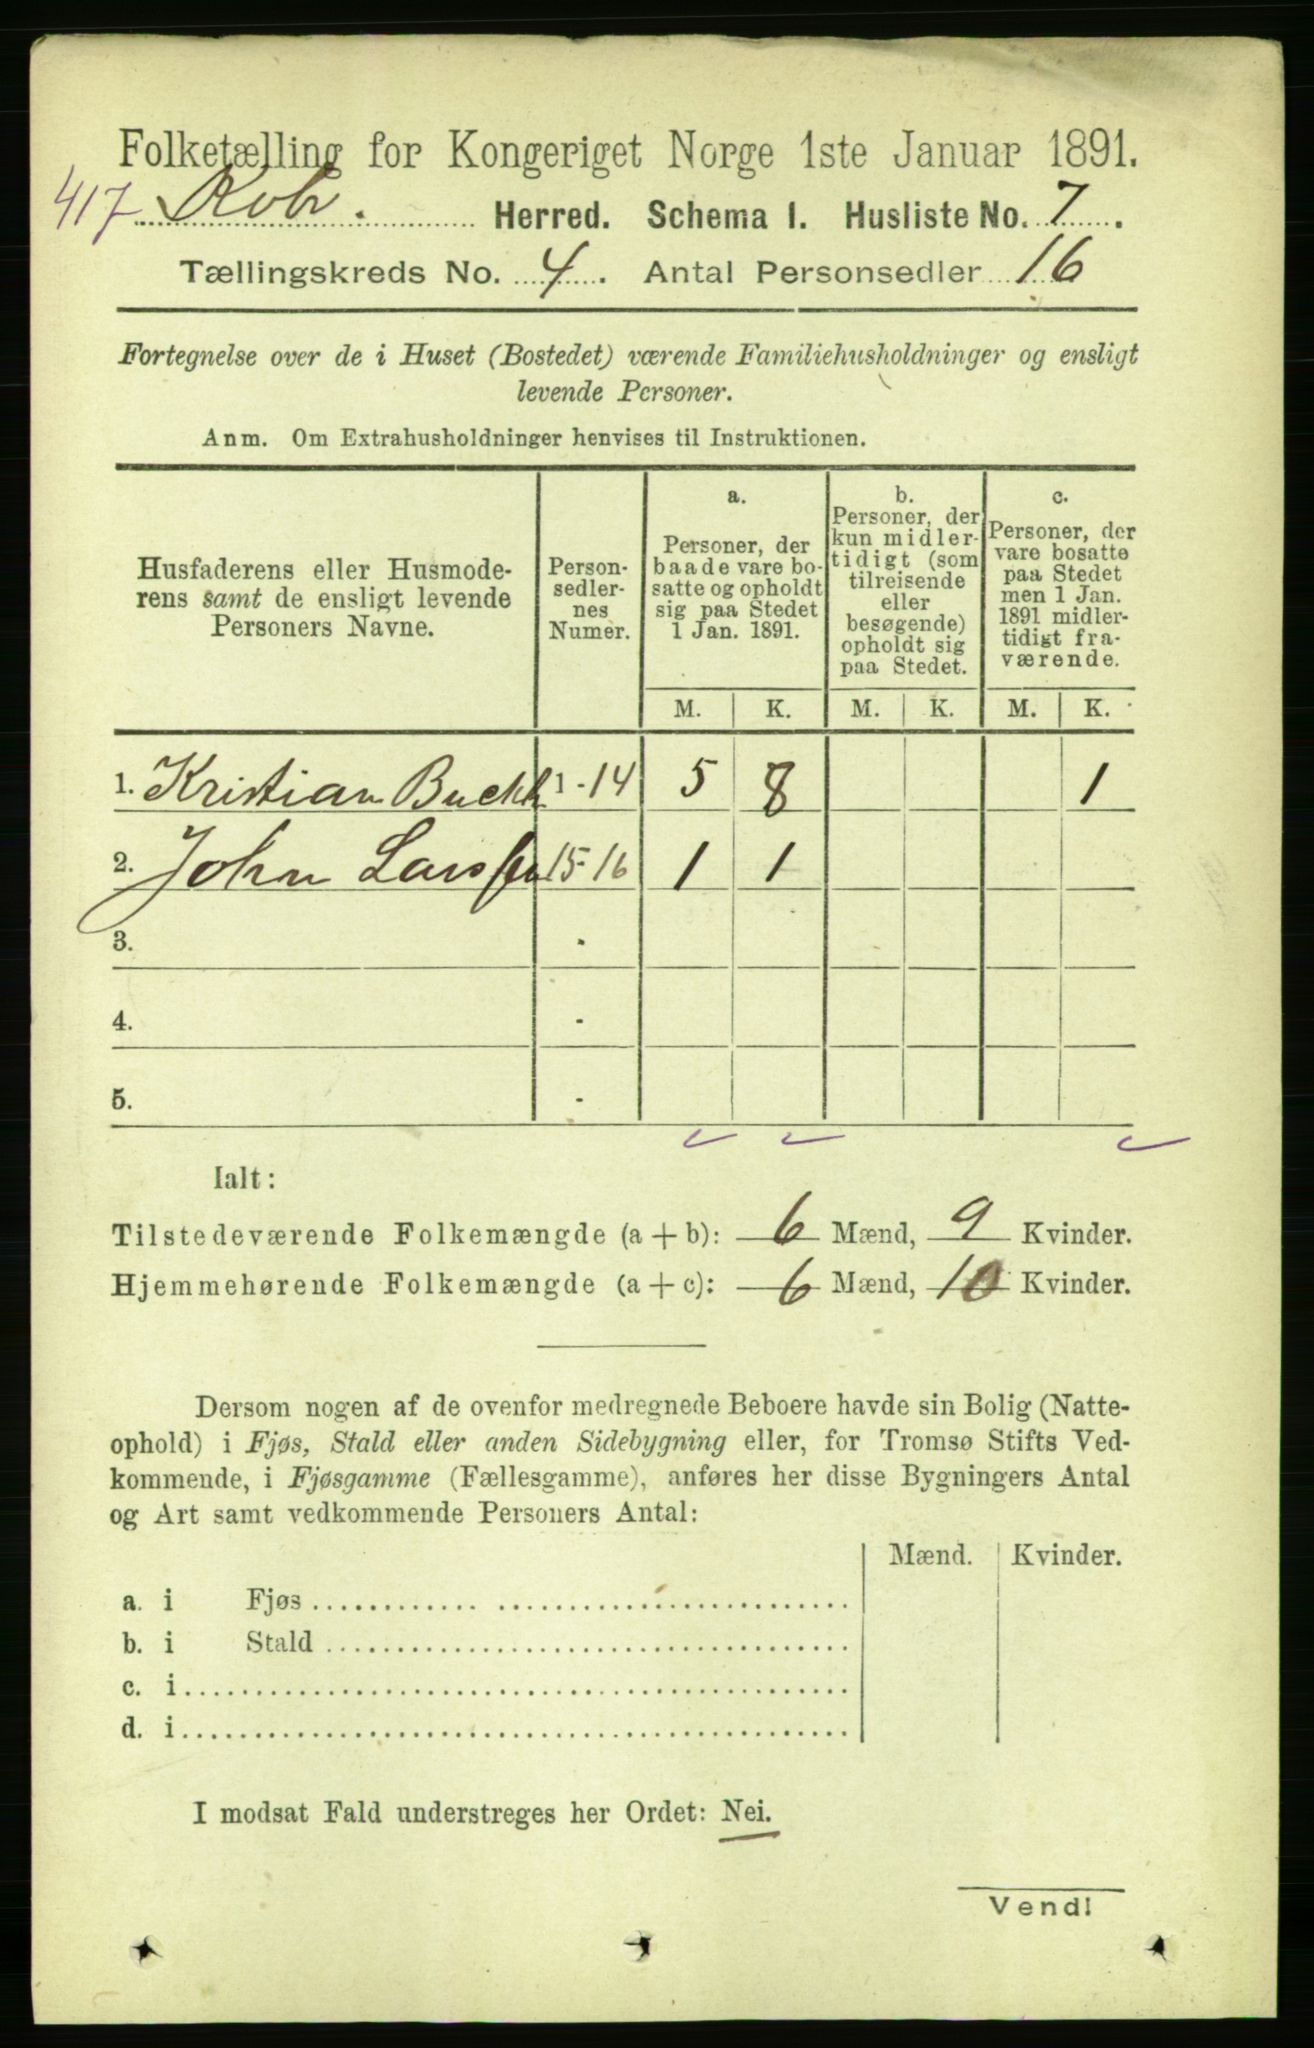 Folketælling for Kongeriget Norge 1ste Januar 1891.
417 Herred. Schema I. Husliste No. 7.
Tællingskreds No. 4. Antal Personsedler 16
Fortegnelse over de i Huset (Bostedet) værende Familiehusholdninger og ensligt
levende Personer.
Anm. Om Extrahusholdninger henvises til Instruktionen.
Husfaderens eller Husmode-
rens samt de ensligt levende
Personers Navne.
Person-
sedler-
nes
Numer.
a.
Personer, der
baade vare bo-
satte og opholdt
sig paa Stedet
1 Jan. 1891.
b.
Personer, der
kun midler-
tidigt (som
tilreisende
eller
besøgende)
opholdt sig
paa Stedet.
c.
Personer, der
vare bosatte
paa Stedet
men 1 Jan.
1891 midler-
tidigt fra-
værende.
M. K. M. K. M. K.
1. Kristian 1-14 5 8 1
2. John Larssen 15-16 1 1
3. -
4. -
5. -
Ialt:
Tilstedeværende Folkemængde (a + b): 6 Mænd, 9 Kvinder.
Hjemmehørende Folkemængde (a + c): 6 Mænd, 10 Kvinder.
Dersom nogen af de ovenfor medregnede Beboere havde sin Bolig (Natte-
ophold) i Fjøs, Stald eller anden Sidebygning eller, for Tromsø Stifts Ved-
kommende, i Fjøsgamme (Fællesgamme), anføres her disse Bygningers Antal
og Art samt vedkommende Personers Antal:
Mænd. Kvinder.
a. i Fjøs
b. i Stald
c. i
d. i
I modsat Fald understreges her Ordet: Nei.
Vend!